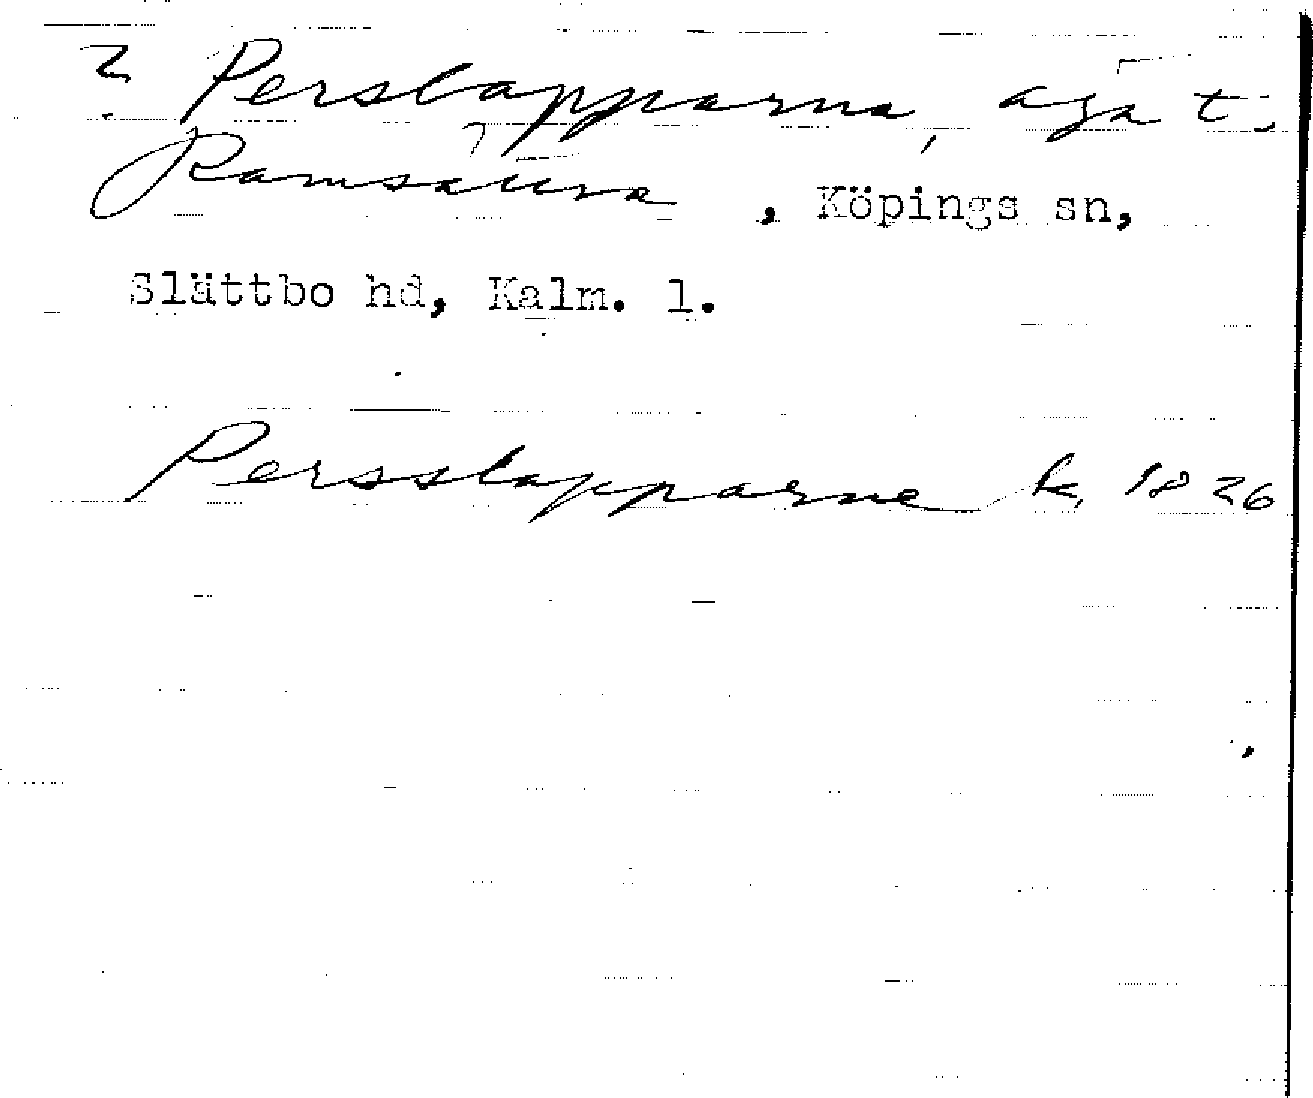 ? Perslapparna, äga t.
Ramsättra, Köpings sn,
Slättbo hd, Kalm. l.
Persslapparne k, 1826